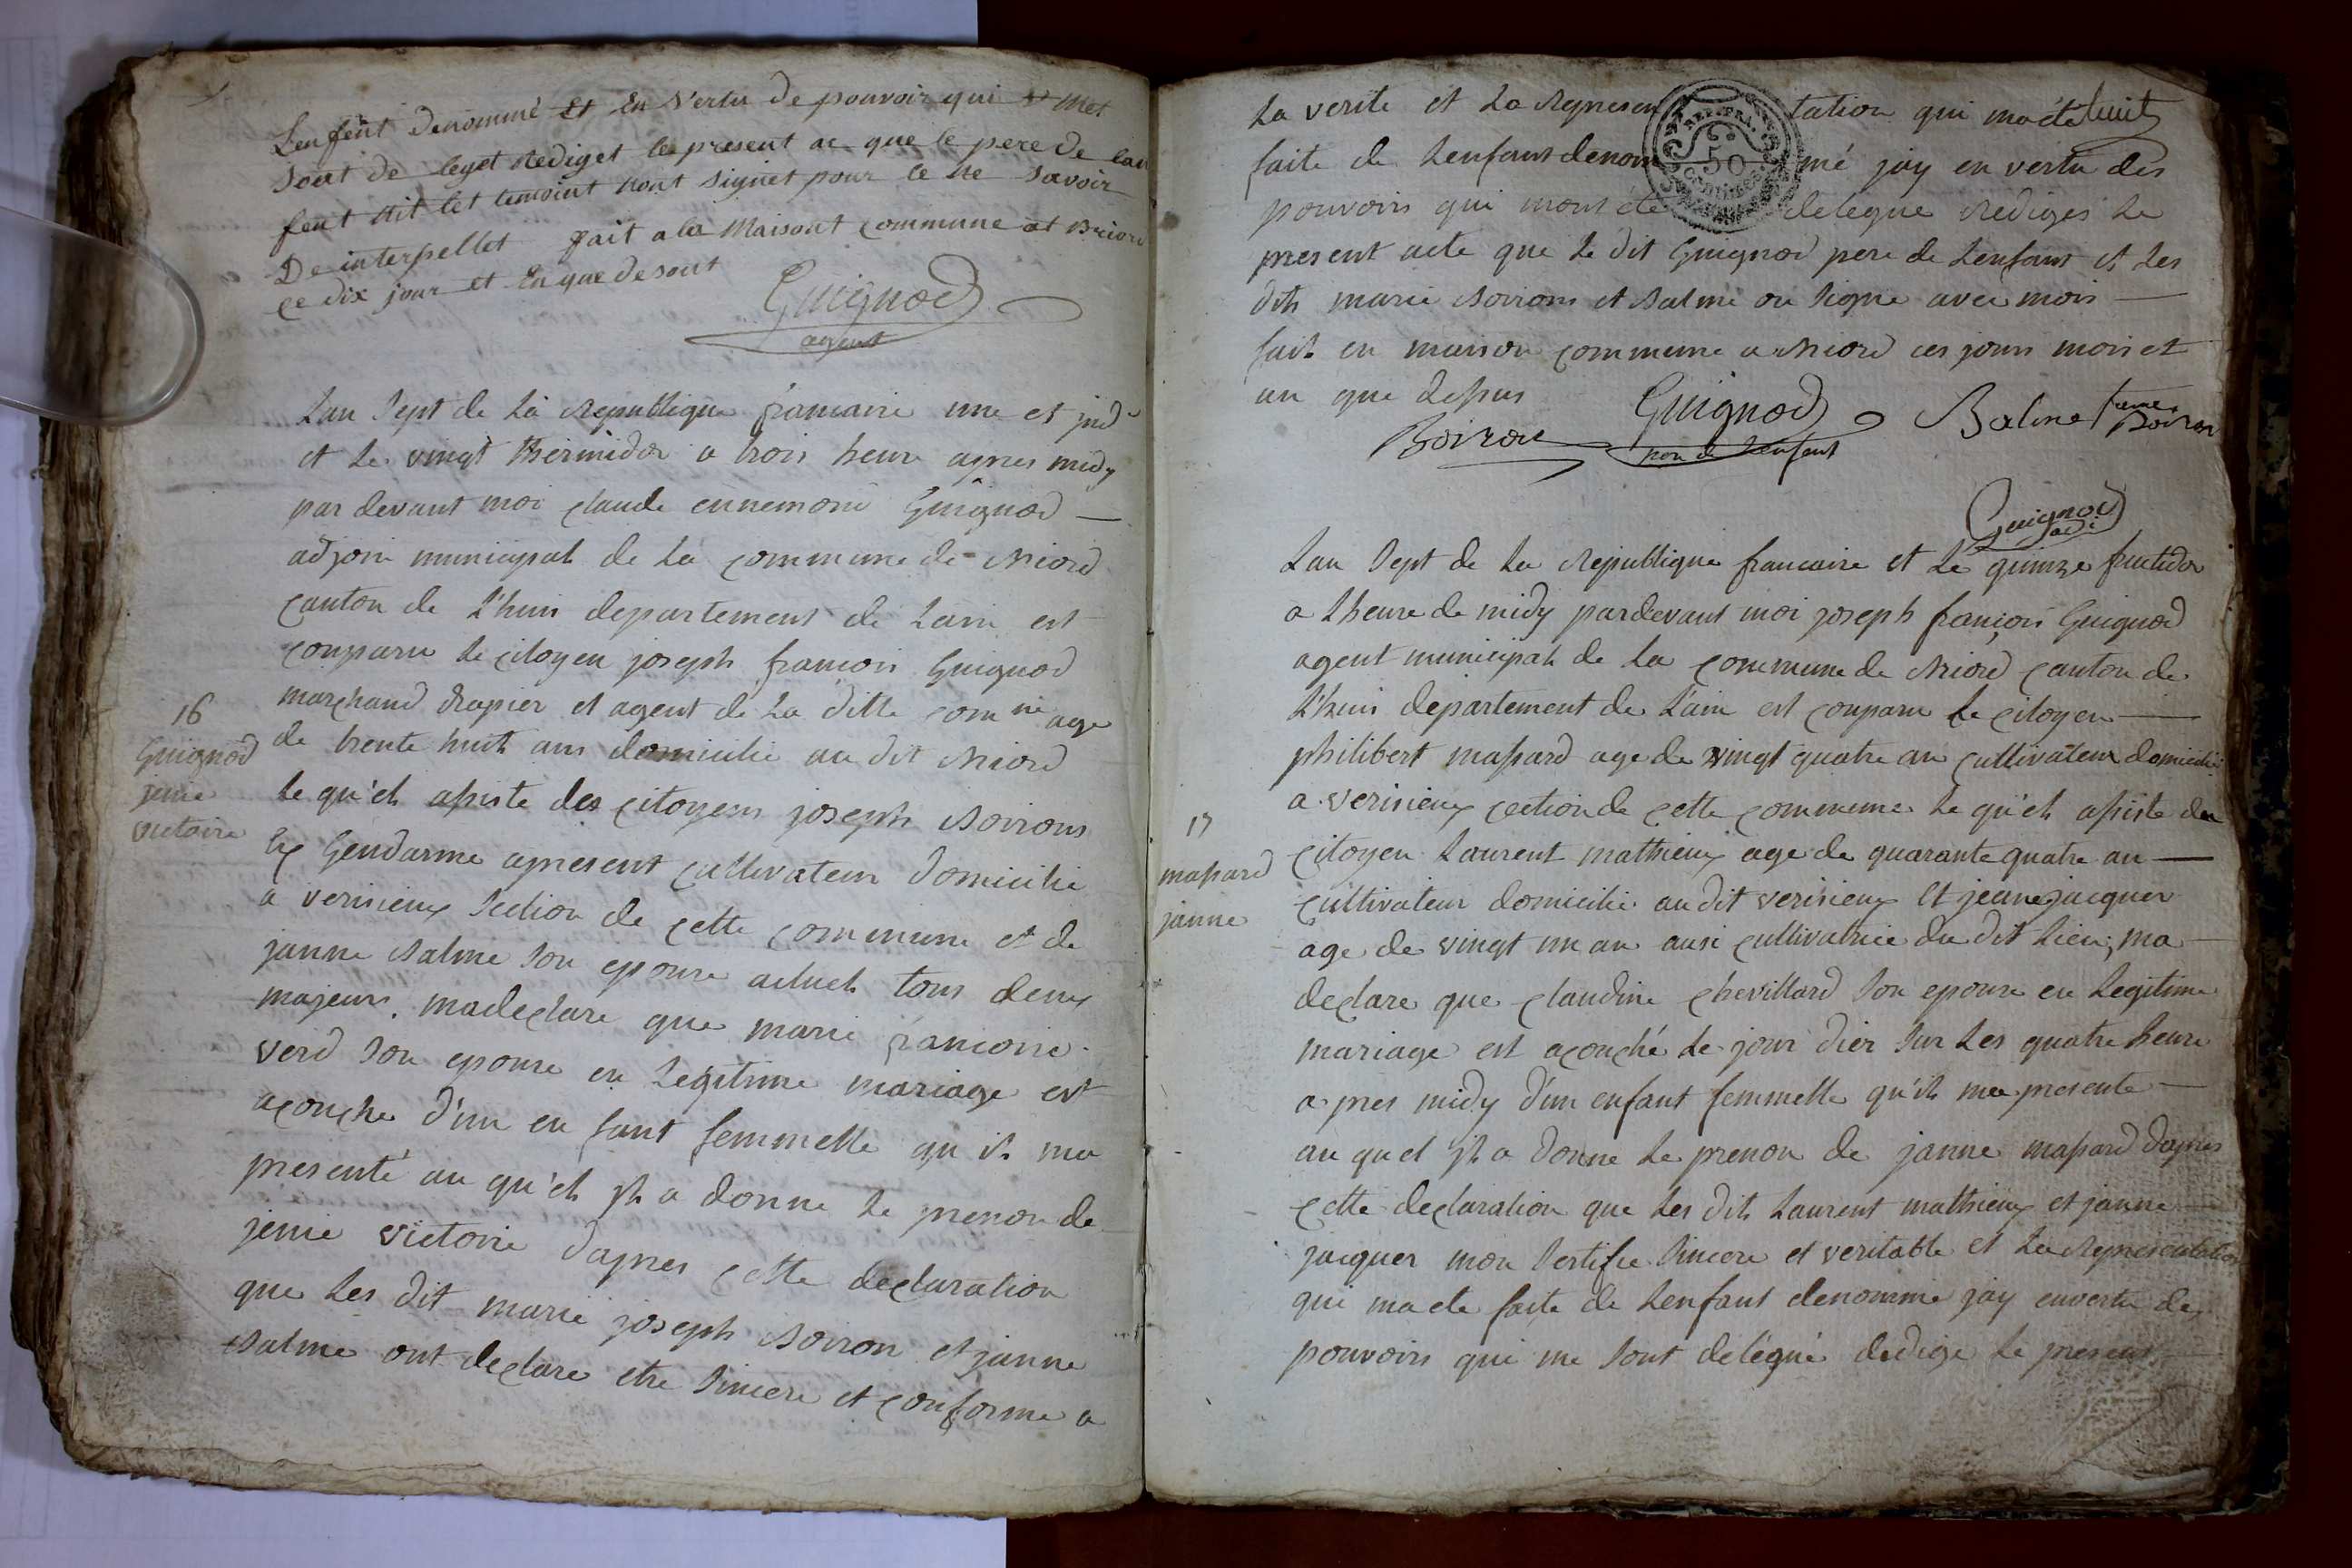 Lenfent denommé et en vertu de pouvoir qui met
sont de leget rediget le present ac que le pere de lan
fent dit let temoint nont signet pour ce ne savoir
De interpellet fait a la Maisont commune at Briord
ce dix jour et en que desout
Guignod
agent
Lan sept de la Republique francaise une et ind
et le vingt thermidor a trois heure apres midy
par devant moi claude ennemond Guignod
adjoin municipal de la commune de Briord
canton de L'huis departement de Lain est
comparu le citoyen joseph francois Guignod
marchand drapier et agent de la ditte com ne age
de trente huit ans domicilie au dit Briord
16
Guignod
jenie
victoire
le qu'el assiste des citoyens joseph Boirons
Ex Gendarme apresent cultivateur domicilie
a verisieux section de cette commune et de
janne Balme son epouse actuel tous deux
majeurs, madeclare que marie francoise
verd son epouse en legitime mariage est
acouche d'un en fant femmelle qu il ma
presenté au qu'el jl a donne le prenon de
jenie victoire dapres cette declaration
que les dit marie joseph Boiron et janne
Balme ont declare etre sincere et conforme a
La verite et la represen tation qui ma été
faite de Lenfant denom mé jay en vertu des
pouvoirs qui mont été delegue rediges le
present acte que le dit Guignod pere de Lenfant et les
dits marie Boirons et Balme on signe avec mois
fait en maison commune a Briord ces jours mois et
an que dessus
Boiron
Guignod
pere de Lenfant
Balme feme Boiron
Guignod
adj
REP. FRA.
50
Lan sept de la Republique francaise et le quinze fructidor
a Lheure de midy pardevant moi joseph françois Guignod
agent municipal de la commune de Briord canton de
L'huis departement de Lain est comparu le citoyen
philibert massard age de vingt quatre an cultivateur domicilié
a verisieux cection de cette commune le qu'el assiste du
17
massard
janne
citoyen Laurent mathieux age de quarante quatre an
cultivateur domicilie au dit verisieux et jeane jacquer
age de vingt un an ausi cultivatrice du dit lieu, ma
declare que claudine chevillard son epouse en legitime
mariage est acouché le jour dier sur les quatre heure
a pres midy d'un enfant femmelle qu'il ma presente
au quel jl a donne le prenon de janne massard dapres
cette declaration que les dits Laurent mathieux et janne
jacquer mon sertifie sincere et veritable et la representation
qui ma ete faite de Lenfant denomme jay envertu des
pouvoirs qui me sont delégué dedige le present